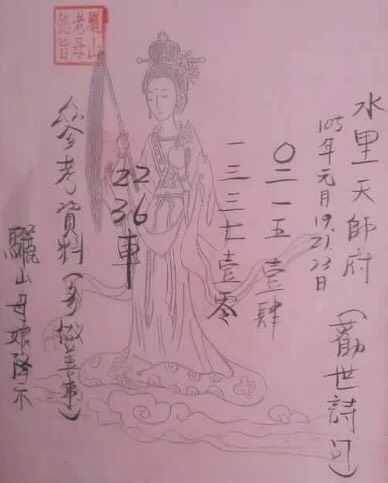 水里天師府 (勸世詩句)
105年元月19.21.23日
〇二一五壹肆
一三三七壹零
22
36 車
參考資料(多做善事)
驪山母娘降示
驪山
老母
懿旨